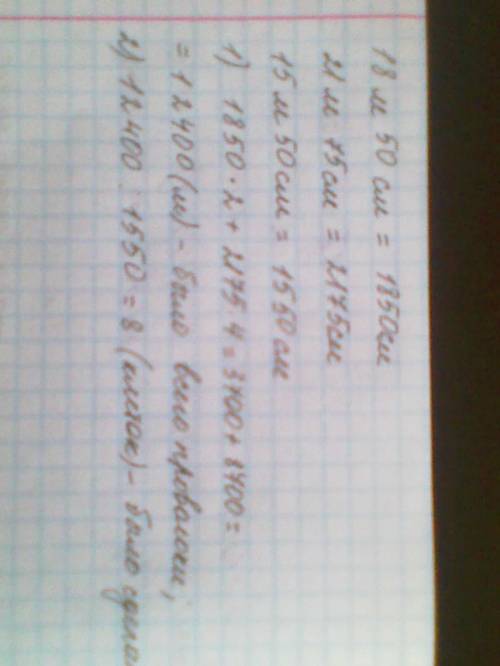 18 м 50 см = 1850см
21 м 75см = 2175см
15 м 50см = 1550см
1) 1850·2+2175·4=3700+8700=
=12400(м)- было всего проволоки,
2) 12400:1550=8 (клеток)- было сделан